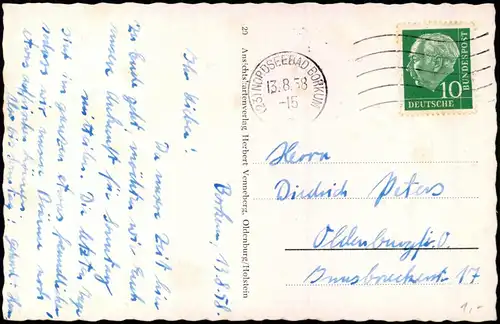 Borkum, 13.8.58.
Ihr Lieben!
Da unsere Zeit hier
zu Ende geht, möchten wir Euch
unsere Ankunft für Sonntag
mitteilen. Die letzten Tage
sind im ganzen etwas freundlicher,
sodass wir unsere Bräune noch
etwas auffrischen können.
Also bis Sonntag!
20 Ansichtskartenverlag Herbert Venneberg, Oldenburg/Holstein
(23) NORDSEEBAD BORKUM
13.8.58
-15
10
DEUTSCHE
BUNDESPOST
Herrn
Diedrich Peters
Oldenburg i. O.
17
1,-